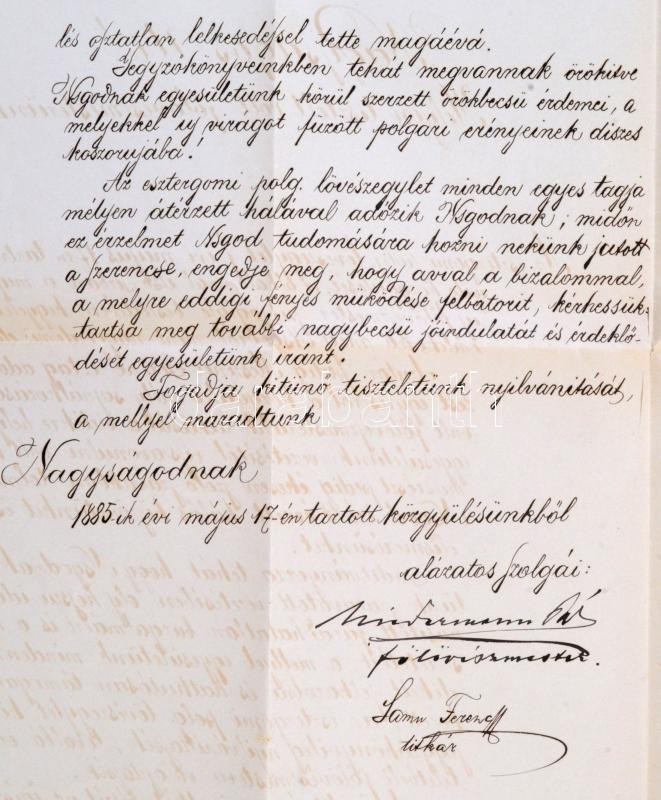 lés osztatlan lelkesedéssel tette magáévá.
Jegyzőkönyveinkben tehát megvannak örökitve
Nsgodnak egyesületünk körül szerzett örökbecsü érdemei, a
melyekkel uj virágot füzött polgári erényeinek diszes
koszorujába!
Az esztergomi polg. lövészegylet minden egyes tagja
mélyen átérzett hálával adózik Nsgodnak; midőn
ez érzelmet Nsgod tudomására hozni nekünk jutott
a szerencse, engedje meg, hogy avval a bizalommal,
a melyre eddigi fényes müködése felbátorit, kérhessük:
tartsa meg további nagybecsü jóindulatát és érdeklő-
dését egyesületünk iránt.
Fogadja kitünő tiszteletünk nyilvánitását,
a mellyel maradtunk
darabanth
Nagyságodnak
1885-ik évi május 17-én tartott közgyülésünkből
alázatos szolgái:
Niedermann Pál
fölövészmester.
Ferencz
titkár